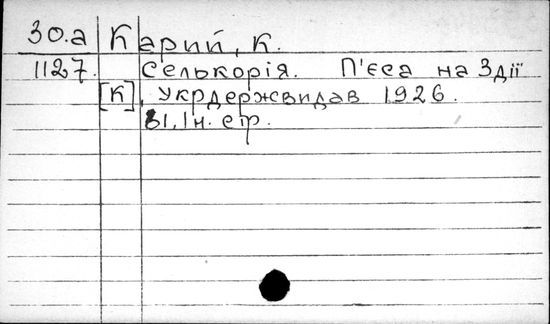 30.а Карий, К.
1127. Селькорія. П'єса на 3 дії
[К], Укрдержвидав 1926.
61, Ін. стр.